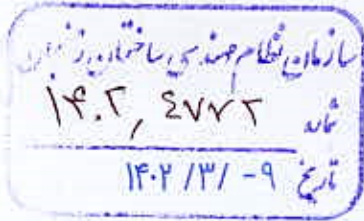 سازمان نظام مهندسی ساختمان زنجان
شماره ۱۴۰۲, ۴۷۷۲
تاریخ ۱۴۰۲/۳/-۹